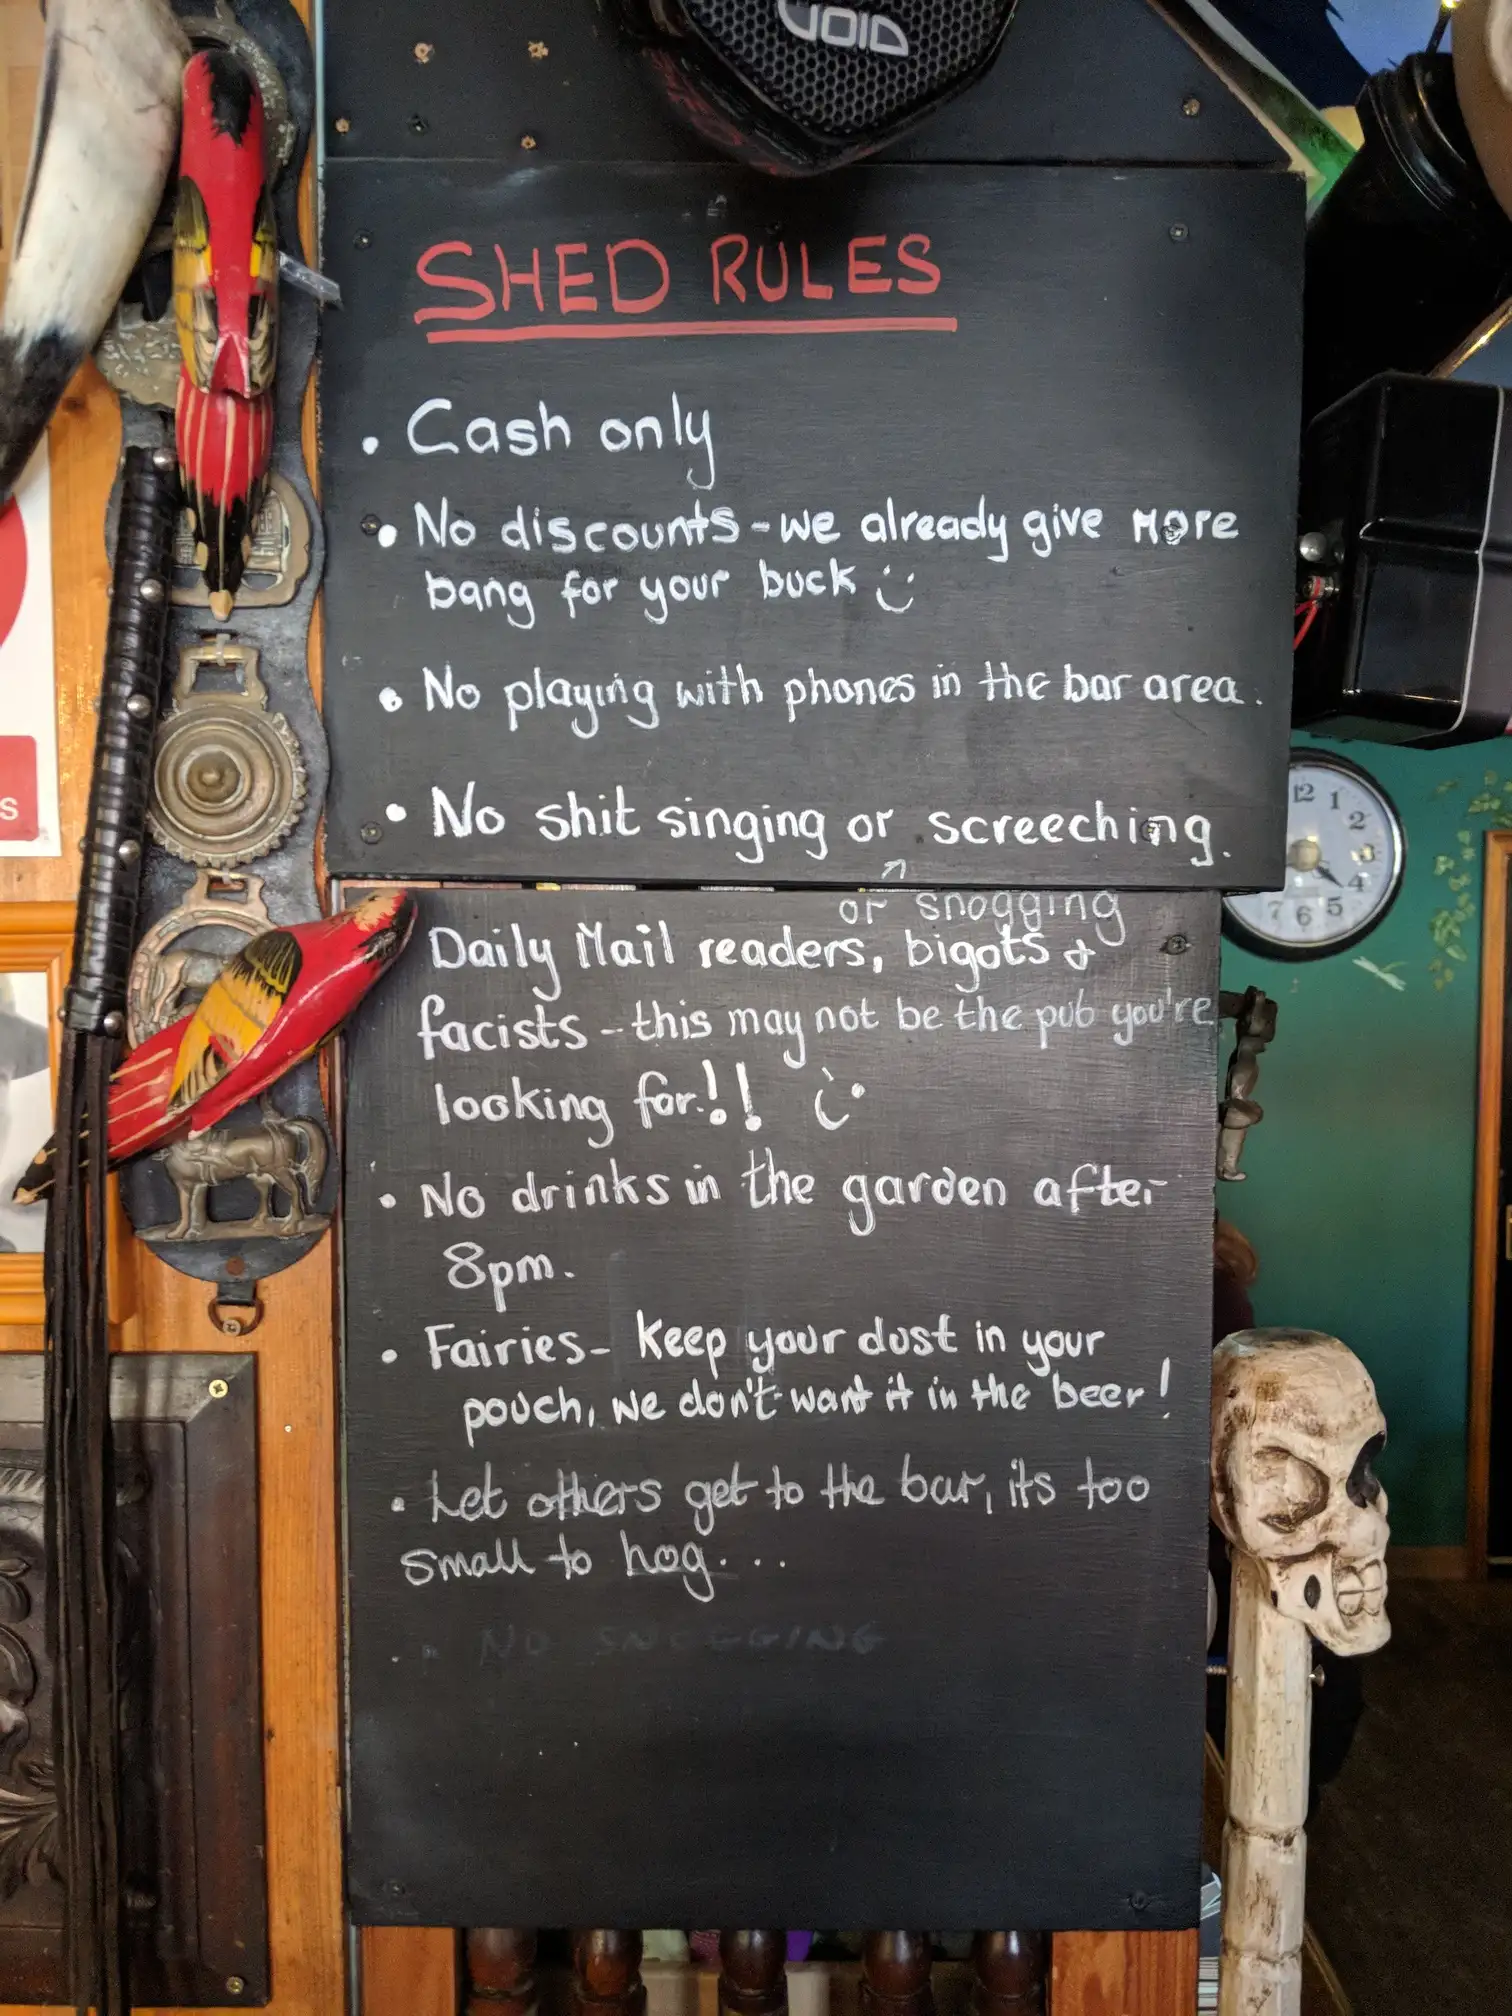 VOID
SHED RULES
• Cash only
• No discounts - we already give more
bang for your buck
• No playing with phones in the bar area.
• No shit singing or screeching.
or snogging
Daily Mail readers, bigots &
facists - this may not be the pub you're
looking for!!
• No drinks in the garden after
8pm.
• Fairies - keep your dust in your
pouch, we don't want it in the beer!
• Let others get to the bar, its too
small to hog...
• NO SNOGGING
S
12
1
2
4
5
6
7